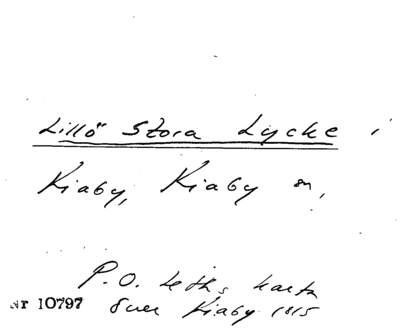 Lillö Stora Lycke i
Kiaby, Kiaby sn,
P.O. Leths karta
Nr 10797 över Kiaby 1815